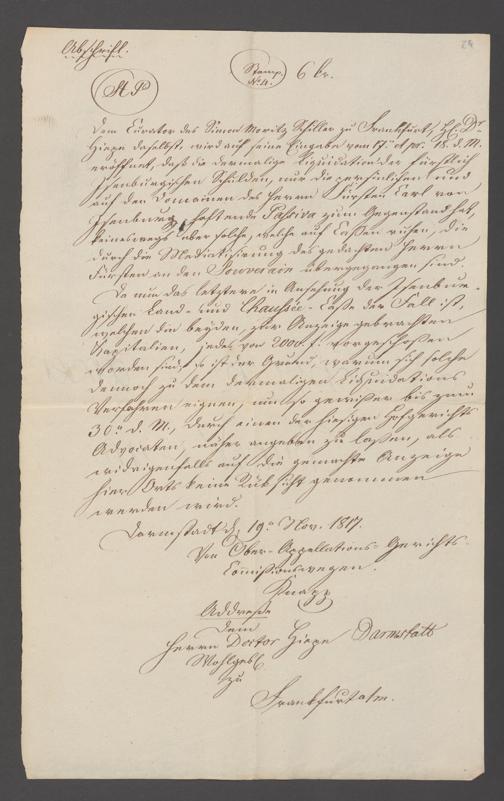 24
Abschrift.
Stemp. N. 4. 6 kr.
Dem Curator des Simon Moritz Schiller zu Frankfurt, H. Dr.
daselbst wird auf seine Eingabe vom 17. pr. 18. d. M.
eröffnet, daß die dermalige Liquidation der Fürstlich
Isenburgischen Schulden, nur die persönlichen und
auf den Domainen des Herrn Fürsten Carl von
Isenburg haftende Passiva zum Gegenstand hat,
keineswegs aber solche, welche auf Caßen ruhen, die
durch die Mediatisirung des gedachten Herrn
Fürsten an den Souverain übergegangen sind.
Da nun das letztere in Ansehung der Isenbur-
gischen Land- und Chaussée-Caße der Fall ist,
welchen die beyden, zur Anzeige gebrachten
Kapitalien, jedes von 2000 f. vorgeschoßen
worden sind, so ist der Grund, warum sich solche
dennoch zu dem dermaligen Liquidations
Verfahren eignen, um so gewißer bis zum
30. d. M., durch einen der hiesigen Hofgerichts
Advocaten, näher angeben zu laßen, als
widrigenfalls auf die gemachte Anzeige
hier Orts keine Rücksicht genommen
werden wird.
Darmstadt d. 19. Nov. 1817.
Von Ober-Appellations-Gerichts-
Commissionswegen.
Knapp
Addresse
Dem
Herrn Doctor Darmstatt
Wohlgeb.
zu
Frankfurt a/m.